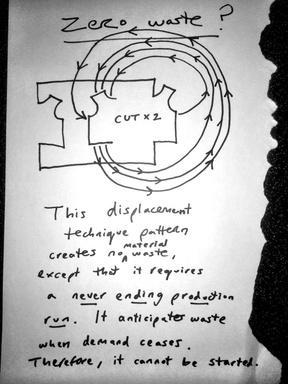 Zero waste?
CUT x 2
This displacement
technique pattern
creates no material waste,
except that it requires
a never ending production
run. It anticipates waste
when demand ceases.
Therefore, it cannot be started.